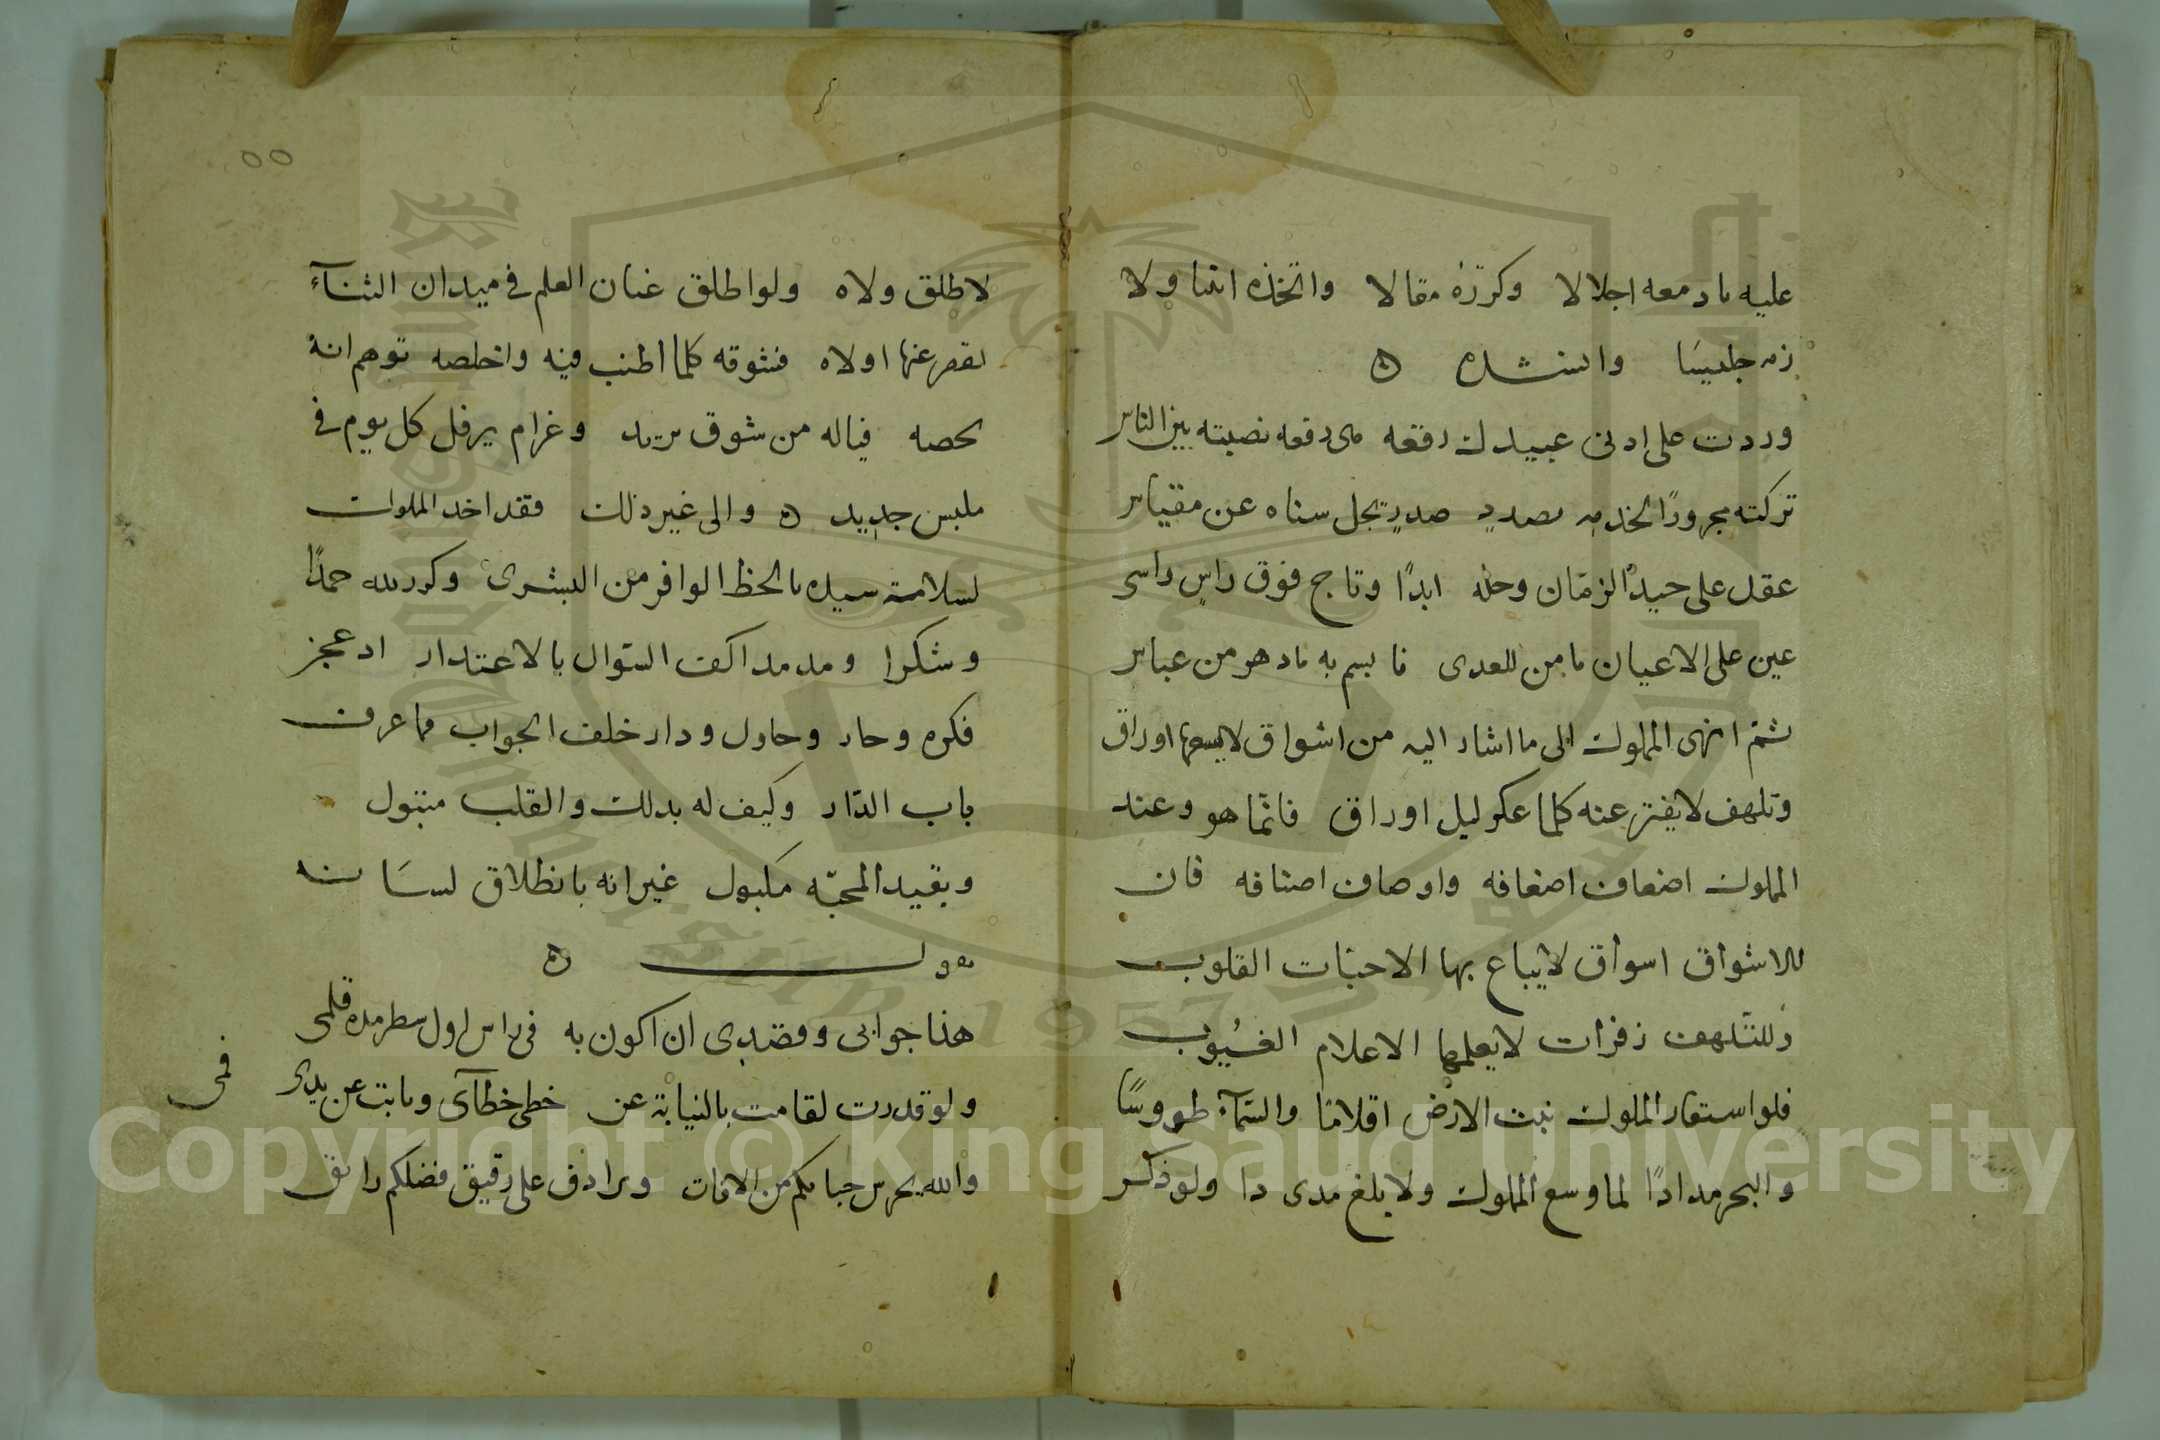 عليه بادمعه اجلالا وكرّره مقالا واتخذه ابنا ولا
زمه جليسًا وانشده ه
وردت على ادنى عبيدك رفعه نصبته بين الناس
تركته مجرورًا لخدمه صدرٍ يجل سناه عن مقياس
عقل على جيد الزمان وحله ابدًا وتاج فوق راسٍ راسى
عين على الاعيان مامن للعدى بسم به من عباس
ثم انهى المملوك الى ما اشار اليه من اشواق لايسعها اوراق
وتلهف لايفتر عنه كلما عكر ليل اوراق فانما هو وعند
المملوك اضعاف اضعافه واوصاف اصنافه فان
للاشواق اسواق لايباع بها الاحبّات القلوب
وللتلهف زفرات لايعلمها الاعلام الغيُوب
فلو استعار المملوك نبت الارض اقلامًا والسّمآء طروسًا
والبحر مدادًا لما وسع المملوك ولا بلغ مدى ذا ولو ذكر
٥٥
لاطلق ولاه ولو اطلق عنان العلم فى ميدان الثنآء
لقصر عنها اولاه فشوقه كلما اطنب فيه واخلصه توهم انه
لحصه فياله من شوق يزيد وغرام يرفل كل يوم فى
ملبس جديد ه والى غير ذلك فقد اخد المملوك
لسلامة سيده بالحظ الوافر من البشرى وكرر لله حمدًا
وشكرا ومد مد اكف السّوال بالاعتدار اد عجز
فكره وحار وحاول ودار خلف الجواب فما عرف
باب الدّار وكيف له بدلك والقلب متبول
وبقيد المحبّه مكبول غير انه بانطلاق لسَانه
يقول ه
هذا جوابى وقصدى ان اكون به فى راس اول سطر مده قلمى
ولو قدرت لقامت بالنيابة عن خطى خطآى ونابت عن يدى
فمى
والله يحرس جنابكم من الافات ويرادف على رقيق فضلكم